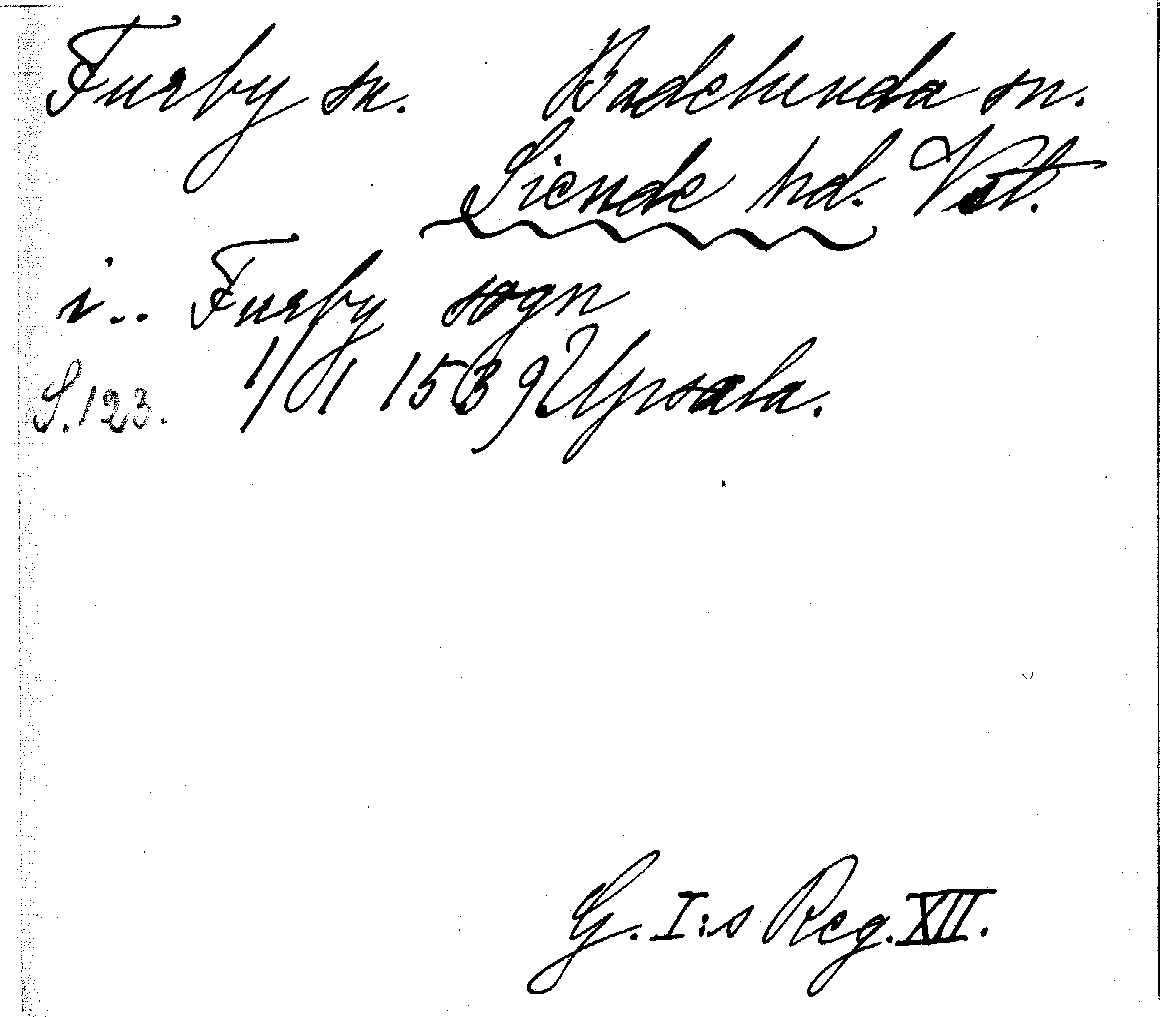 Furby sn. Badelunda sn.
Siende hd. Vstl.
i.. Furby sogn
S. 123. 1/1 1539 Upsala.
G. I:s Reg. XII.